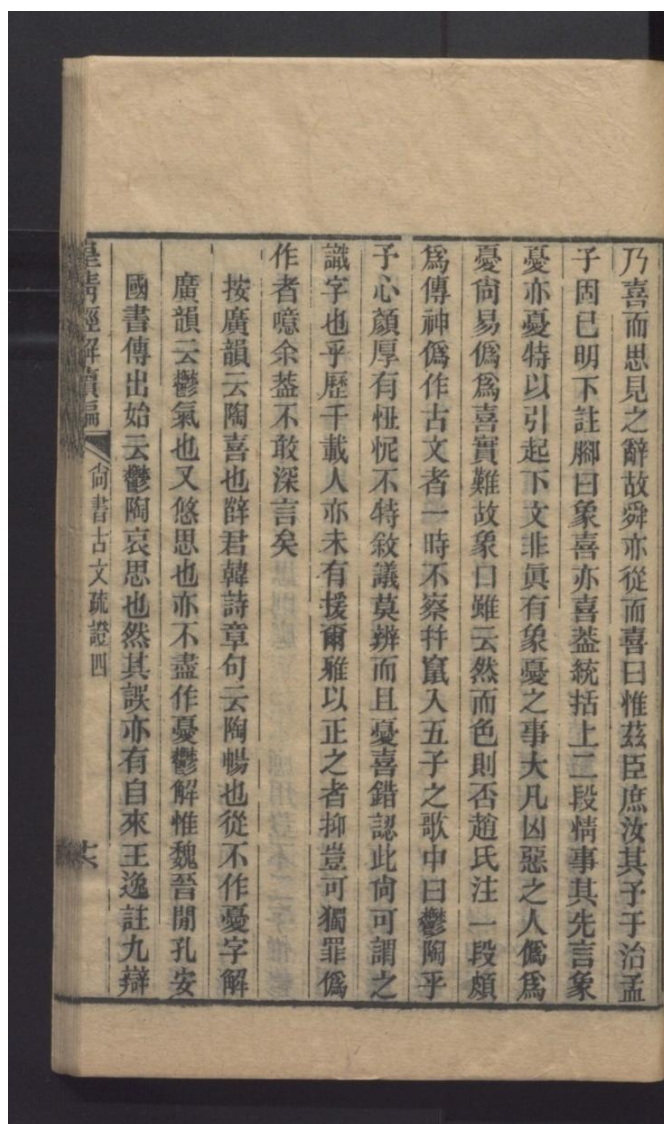 乃喜而思見之辭故舜亦從而喜曰惟茲臣庶汝其予于治孟
子固已明下註腳曰象喜亦喜葢統括上二段情事其先言象
憂亦憂特以引起下文非眞有象憂之事大凡凶惡之人僞爲
憂尙易僞爲喜實難故象口雖云然而色則否趙氏注一段頗
爲傳神僞作古文者一時不察幷竄入五子之歌中曰鬱陶乎
予心顏厚有忸怩不特敘議莫辨而且憂喜錯認此尙可謂之
識字也乎歷千載人亦未有援爾雅以正之者抑豈可獨罪僞
作者噫余葢不敢深言矣
按廣韻云陶喜也薛君韓詩章句云陶暢也從不作憂字解
廣韻云鬱氣也又悠思也亦不盡作憂鬱解惟魏晉閒孔安
國書傳出始云鬱陶哀思也然其誤亦有自來王逸註九辯
皇淸經解續編
尙書古文疏證四